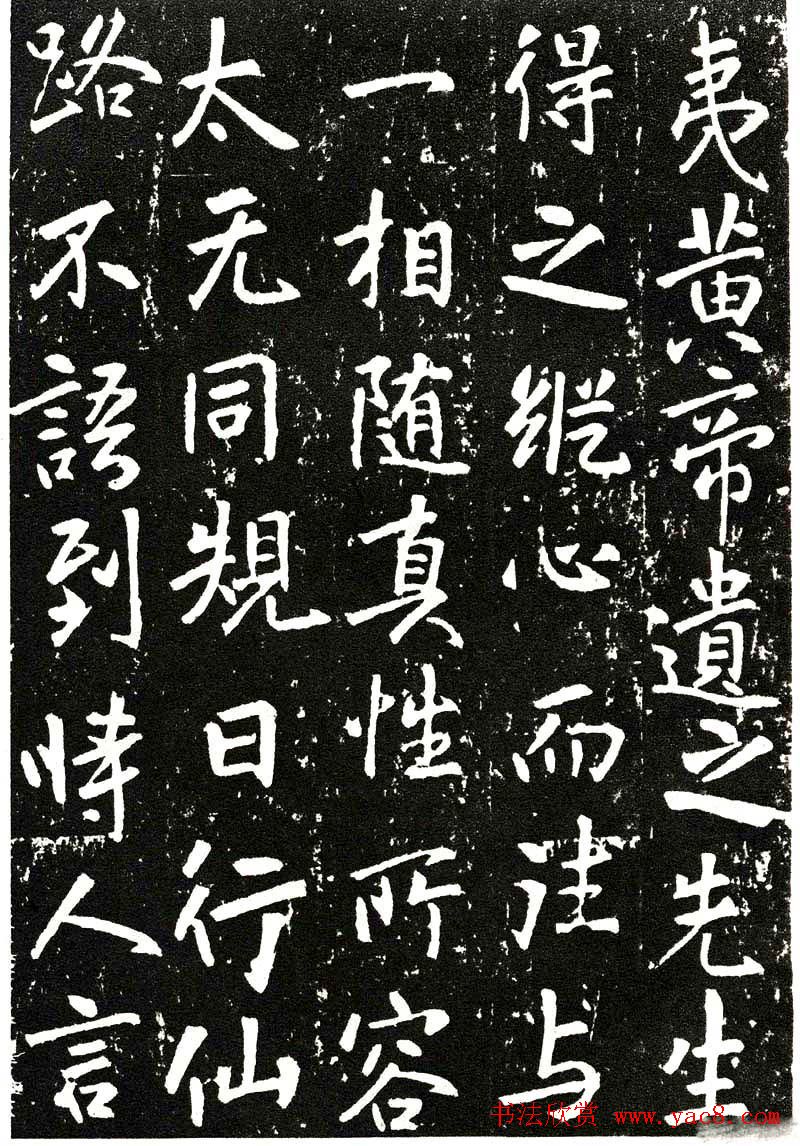 夷黄帝遺之先生
得之縱心而往与
一相随真性所容
太无同規日行仙
路不語到時人言
书法欣赏 www.yac8.com